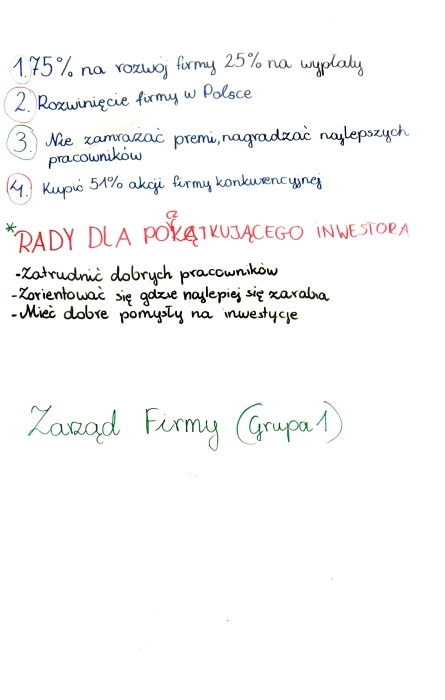 1. 75% na rozwój firmy 25% na wypłaty
2. Rozwinięcie firmy w Polsce
3. Nie zamrażać premi, nagradzać najlepszych
pracowników
4. Kupić 51% akcji firmy konkurencyjnej
* RADY DLA POCZĄTKUJĄCEGO INWESTORA
-Zatrudnić dobrych pracowników
-Zorientować się gdzie najlepiej się zarabia
-Mieć dobre pomysły na inwestycje
Zarząd Firmy (Grupa 1)